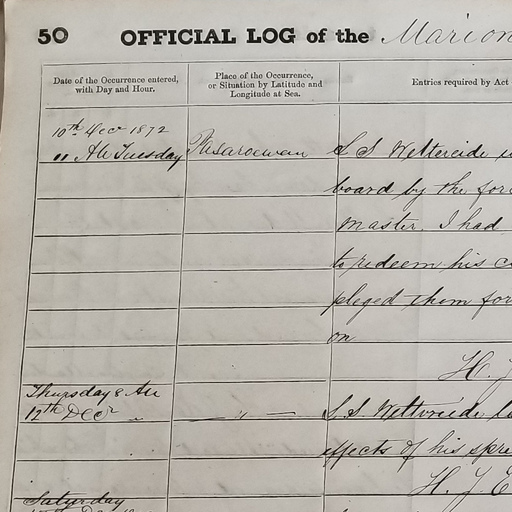 50 OFFICIAL LOG of the Marion
Date of the Occurrence entered, with Day and Hour.
Place of the Occurrence, or Situation by Latitude and Longitude at Sea.
Entries required by Act
10th Decr 1872
11 AM Tuesday
S S
board by the for
master, I had
to redeem his c
pleged them for
on
H. J
Thursday 8 AM
12th Decr
— " —
S. S.
effects of his spre
H. J. E
Saturday